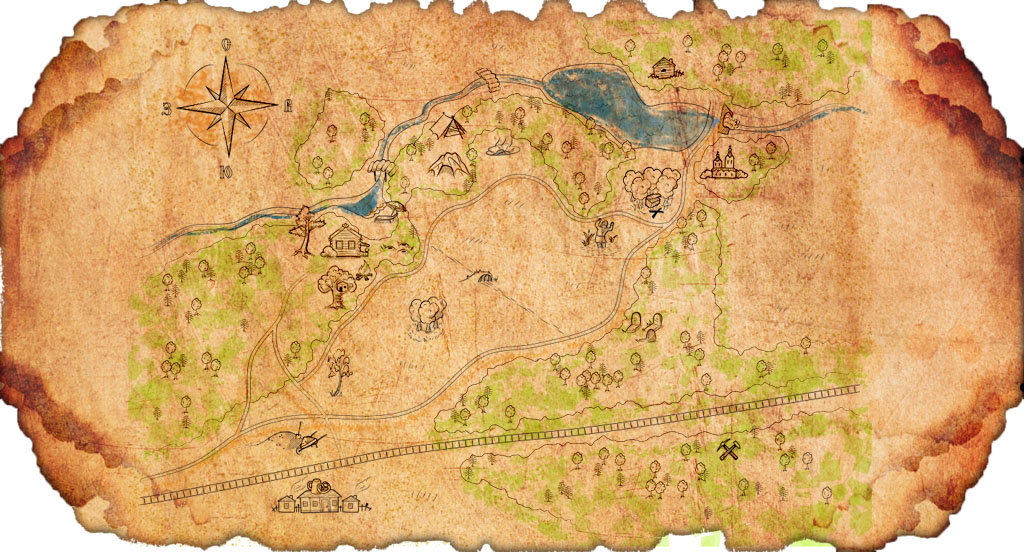 С
З В
Ю